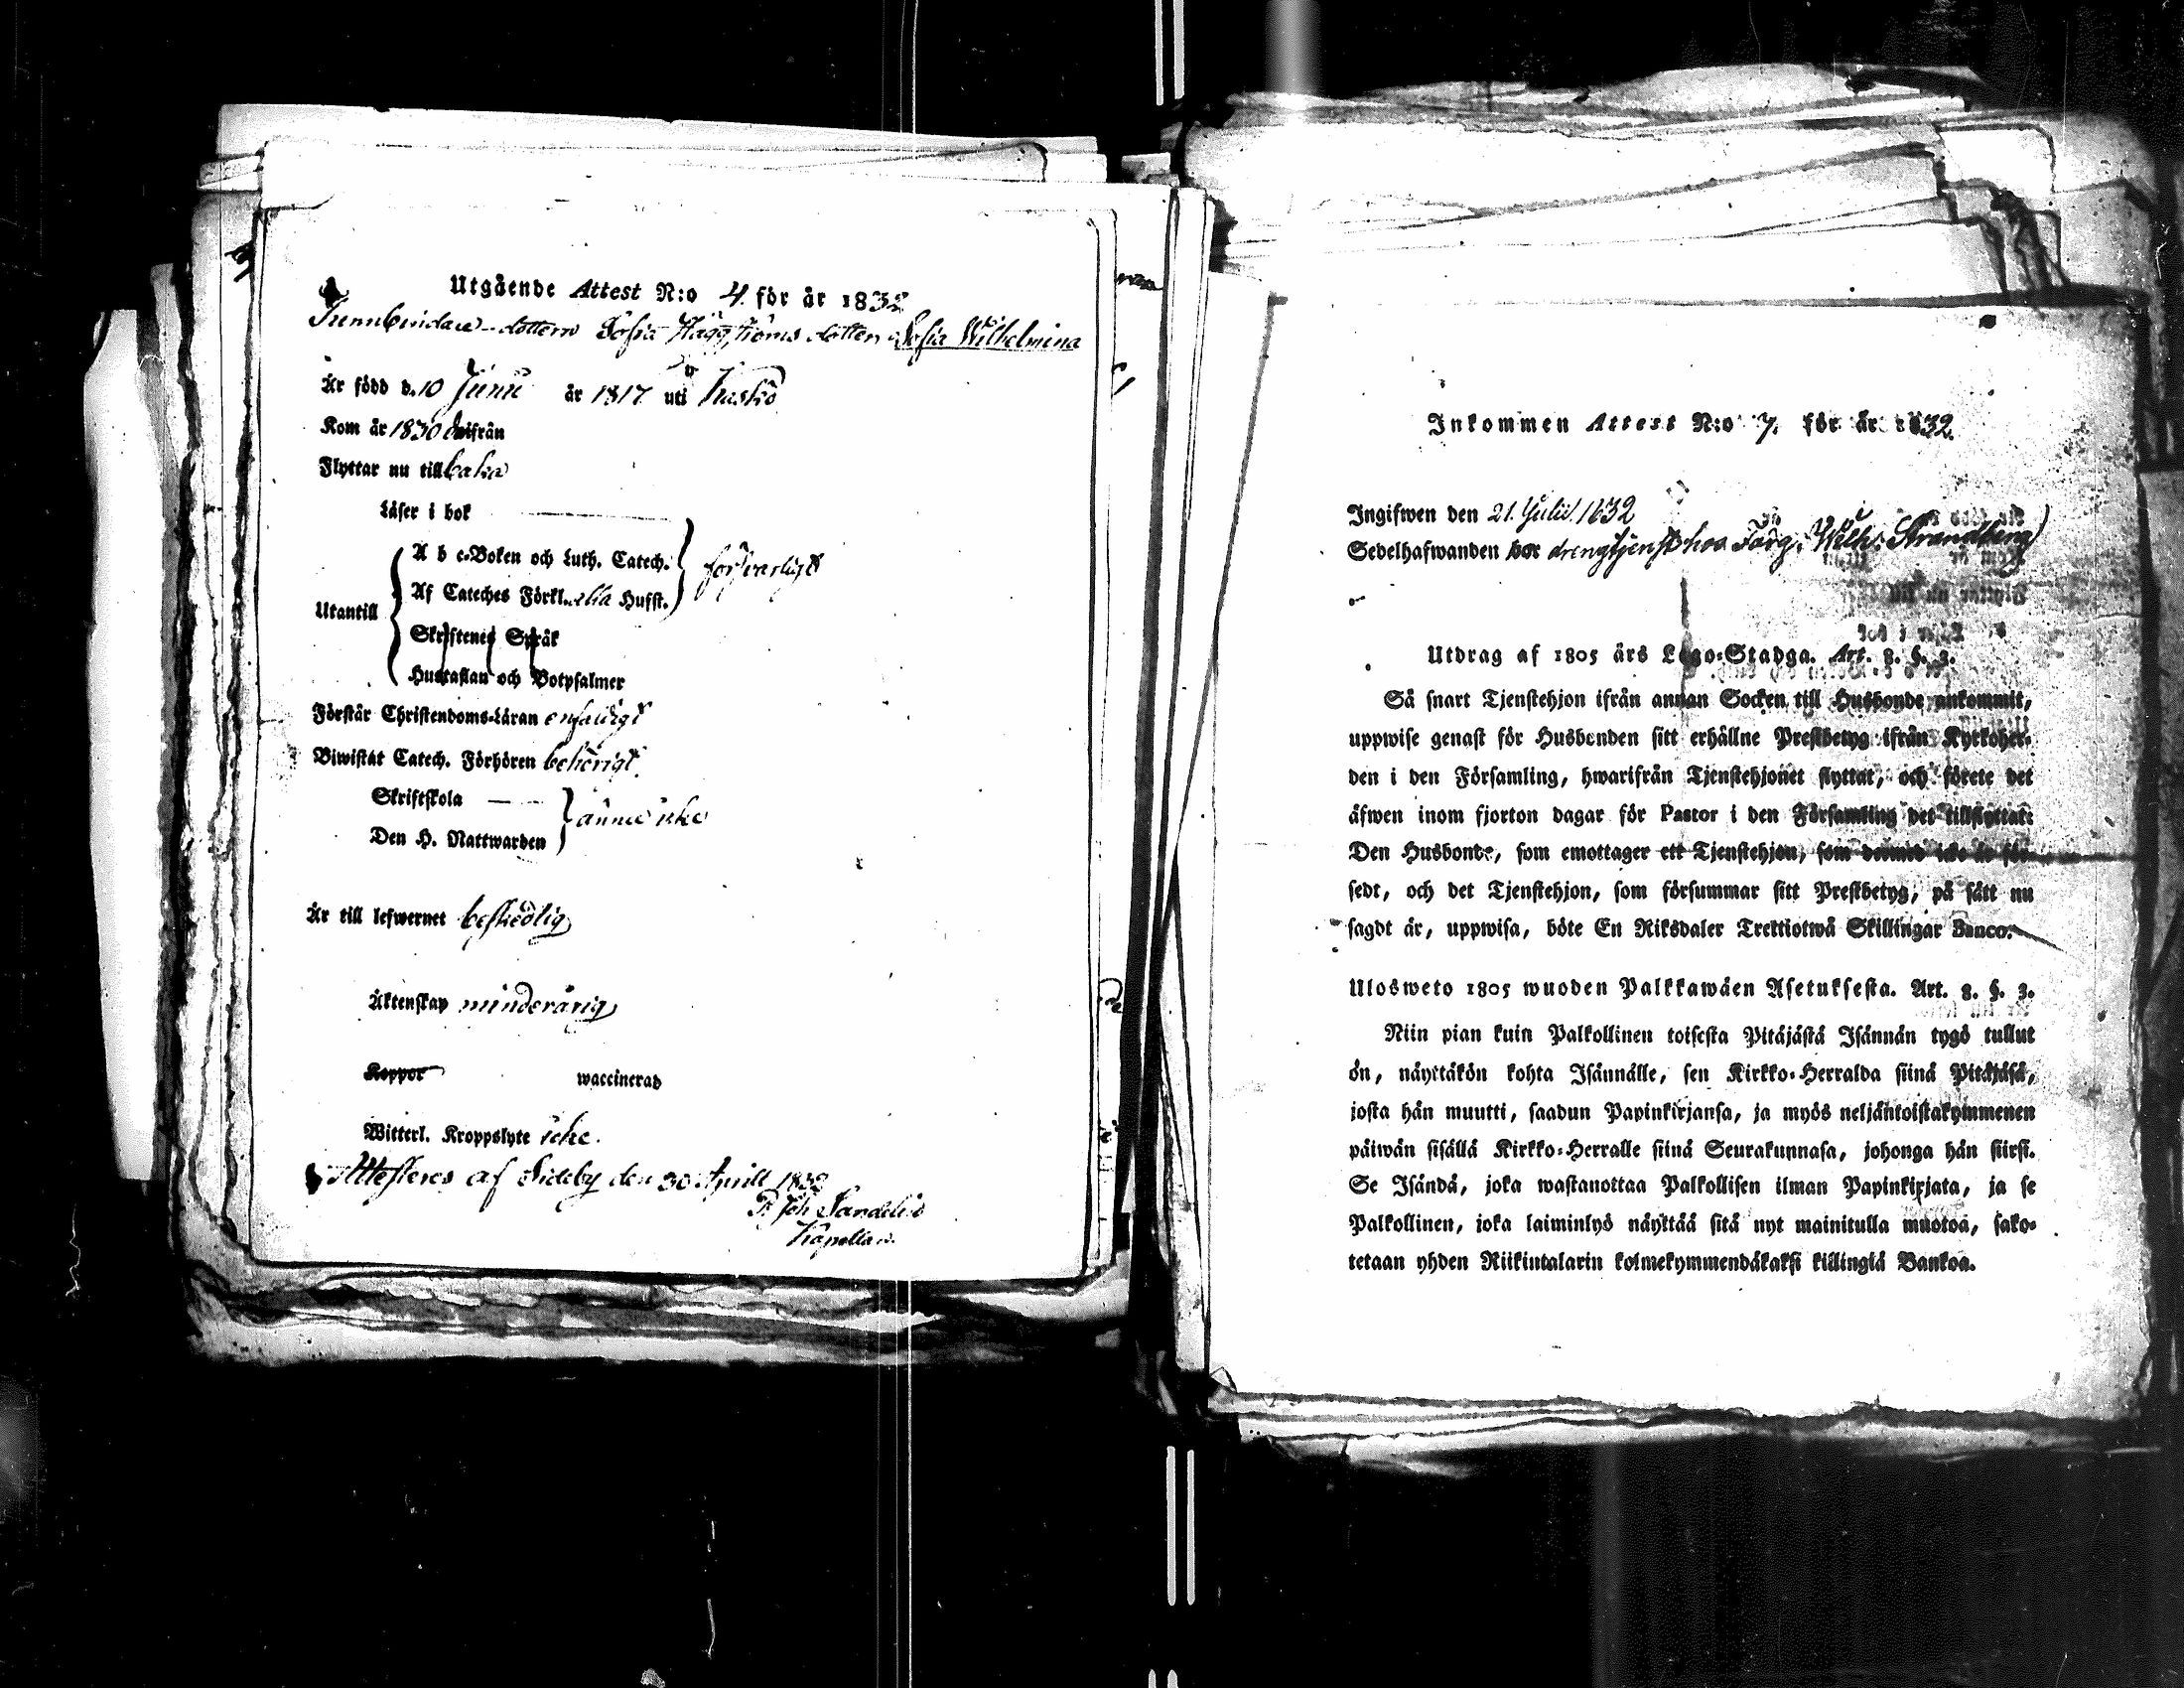 Utgående Attest N:o 4. för år 1832
Tunnbindare-dottern Sofia Häggströms dotter Sofia Wilhelmina
Är född d. 10 Junii år 1817 uti Kaskö
Kom år 1830 därifrån
Flyttar nu tillbaka
Läser i bok
A b c-Boken och Luth. Catech.
försvarligt
Af Cateches Förkl. Husst.
Utantill
Skriftenes Språk
Hustaflan och Botpsalmer
Förstår Christendoms-Läran enfaldigt
Biwistat Catech. Förhören behörigt.
Skriftskola
ännu icke
Den H. Nattwarden
Är till lefwernet beskedlig
Äktenskap minderårig
Koppor waccinerad
Witterl. Kroppslyte icke.
Attesteras af Sideby den 30 Aprill 1832
Joh Sandelin
Kapellan.
Inkommen Attest N:o 7. för år 1832.
Ingifwen den 21. Julii 1832
Sedelhafwanden bor drengtjenst hos Färg. Wilh. Strandberg
Utdrag af 1805 års Lego-Stadga. Art. 8. §. 3.
Så snart Tjenstehjon ifrån annan Socken till Husbonde ankommit,
uppwise genast för Husbonden sitt erhållne Prestbetyg ifrån Kyrkoher-
den i den Församling, hwarifrån Tjenstehjonet flyttat, och förete det
äfwen inom fjorton dagar för Pastor i den Församling det tillflyttat:
Den Husbonde, som emottager ett Tjenstehjon, som dermed icke är för-
sedt, och det Tjenstehjon, som försummar sitt Prestbetyg, på sätt nu
sagdt är, uppwisa, böte En Riksdaler Trettiotwå Skillingar Banco.
Ulosweto 1805 wuoden Palkkawäen Asetuksesta. Art. 8. §. 3.
Niin pian kuin Palkollinen toisesta Pitäjästä Isännän tygö tullut
ön, näyttäkön kohta Isännälle, sen Kirkko-Herralda siinä Pitäjäsä,
josta hän muutti, saadun Papinkirjansa, ja myös neljäntoistakymmenen
päiwän sisällä Kirkko-Herralle siinä Seurakunnasa, johonga hän siirsi.
Se Isändä, joka wastanottaa Palkollisen ilman Papinkirjata, ja se
Palkollinen, joka laiminlyö näyttää sitä nyt mainitulla muotoa, sako-
tetaan yhden Riikintalarin kolmekymmendäkaksi killingiä Bankoa.